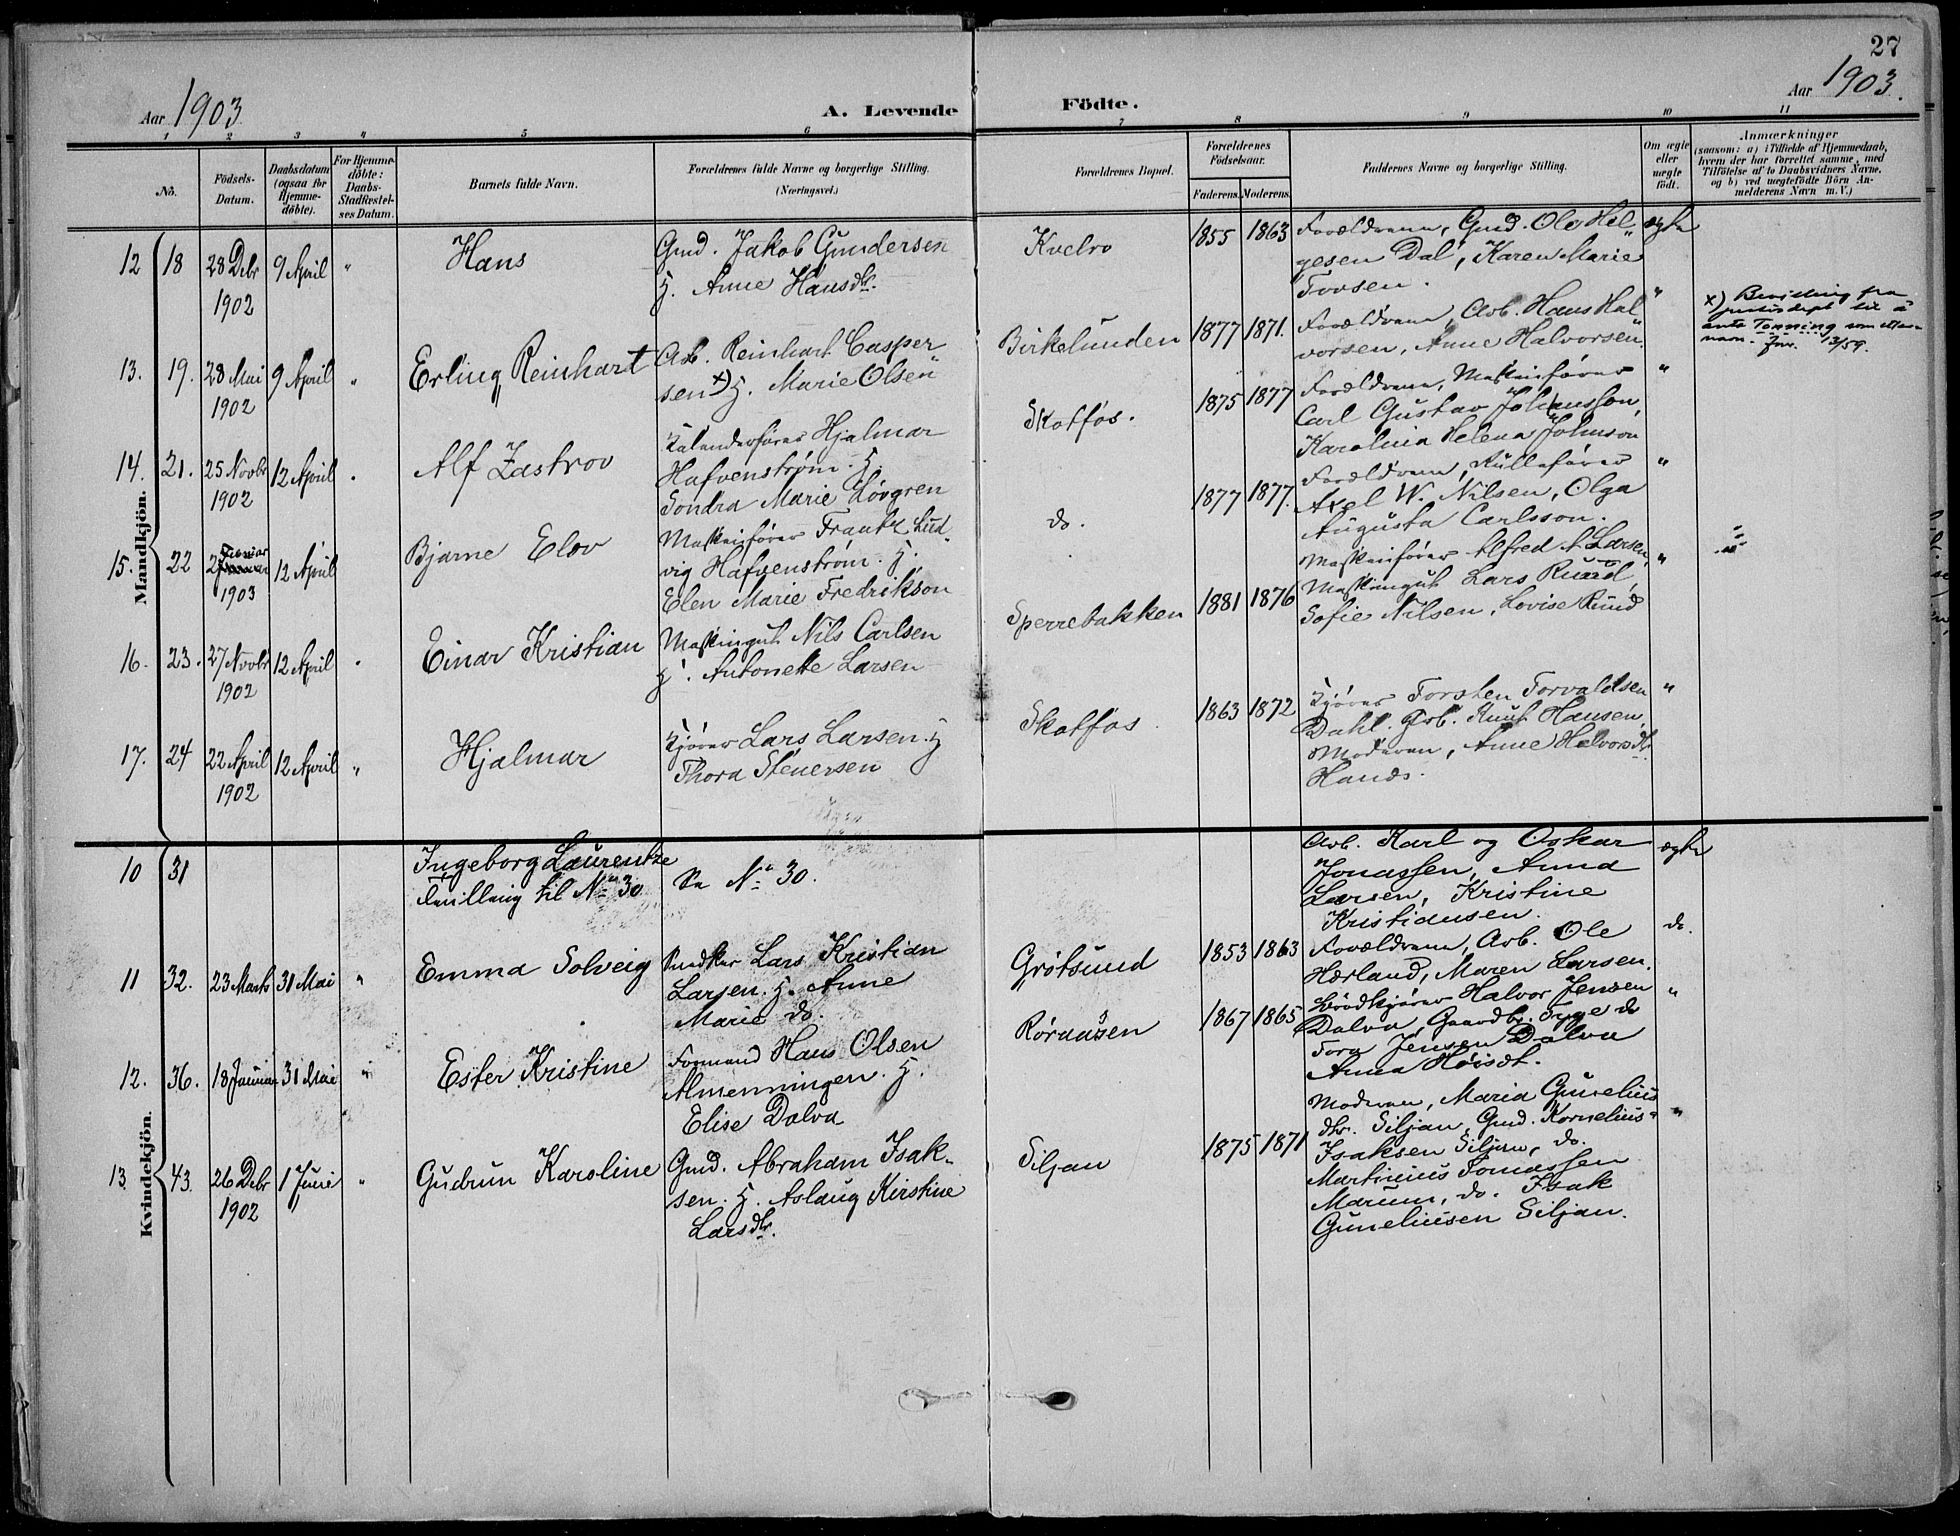 27
Aar 1903
A. Levende
Födte.
Aar 1903.
1 2 3 4 5 6 7 8 9 10 11
No.
Födsels-
Datum.
Daabsdatum
(ogsaa for
Hjemme-
döbte).
For Hjemme-
döbte:
Daabs-
Stadfæstel-
ses Datum.
Barnets fulde Navn.
Forældrenes fulde Navne og borgerlige Stilling.
(Næringsvei.)
Forældrenes Bopæl.
Forældrenes
Födselsaar.
Faderens.
Moderens.
Faddernes Navne og borgerlige Stilling.
Om ægte
eller
uægte
født.
Anmærkninger
(saasom: a) i Tilfælde af Hjemmedaab,
hvem der har forrettet samme, med
Tilföielse af to Daabsvidners Navne,
og b) ved uægtefödte Börn An-
melderens Navn m. V.)
Mandkjön.
12 18 28 Debr 9 April "
1902
Hans
Gmd. Jakob Gundersen
H. Anne Hansdtr.
Kvelro
1855 1863
Forældrene, Gmd. Ole Hel-
gesen Dal, Karen Marie
Tovsen.
ægte
13. 19. 28 Mai 9 April "
1902
Erling Reinhart
Arb. Reinhart Casper
sen x) H. Marie Olsen
Birkelunden
1877 1871.
Forældrene, Arb. Hans Hal
vorsen, Anne Halvorsen.
"
x) Bevilling fra
justisdept til å
anta Tenning som etter-
navn. 13/59.
14. 21. 25 Novbr 12 April "
1902
Alf Zastrov
Kalanderfører Hjalmar
Hafvenstrøm. H
Sondra Marie Løvgren
Skotfos.
1875 1877
Forældrene, Maskinfører
Carl Gustav Johansson,
Karolina Helena Johnson
"
15. 22 2 Januar 12 April
1903
Bjarne Elov
Maskinfører Frantz Lud-
vig Hafvenstrøm. H.
Elen Marie Fredrikson
do.
1877 1877.
Forældrene, Rullefører
Axel W. Nilsen, Olga
Augusta Carlsson.
"
16. 23. 27 Novbr 12 April "
1902
Einar Kristian
Maskingut Nils Carlsen
H. Antonette Larsen
Sperrebakken
1881 1876
Maskinfører Alfred A Larsen,
Maskingut Lars Ruud,
Sofie Nilsen, Lovise Ruud
"
17. 24 22 April 12 April "
1902
Hjalmar
Kjører Lars Larsen. H
Thora Stenersen
Skotfos
1863 1872
Kjører Torsten Torvaldsen
Dahl. Arb. Knut Hansen,
Moderen, Anne Halvorsdtr.
Hands.
"
Kvindekjön.
10 31
Ingeborg Laurentze
Tvilling til No 30
Se No 30.
Arb. Karl og Oskar
Jonassen, Anna
Larsen, Kristine
Kristiansen.
ægte
11 32. 23 Marts 31 Mai "
Emma Solveig
Snedker Lars Kristian
Larsen. H. Anne
Marie do.
Grøtsund
1853 1863
Forældrene, Arb. Ole
Hærland, Maren Larsen.
do.
12. 36. 18 Januar 31 Mai "
Ester Kristine
Formand Hans Olsen
Almenningen. H.
Elise Dalva
Røraasen
1867 1865
Halvor Jensen
Dalva, Gaardbr. Tyge do
Tora Jensen Dalva
Anna Høisdt.
"
13. 43. 26 Debr 1 Juni "
1902
Gudrun Karoline
Gmd. Abraham Isak-
sen. H. Aslaug Kirstine
Larsdtr.
Siljan
1875 1871
Moderen, Maria Gunelius
dtr. Siljan, Gmd. Kornelius
Isaksen Siljan, do.
Martinius Tomassen
Marum, do. Isak
Guneliusen Siljan.
"